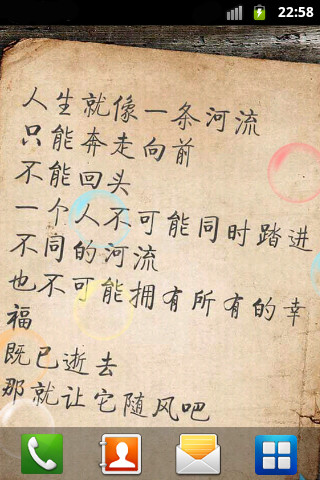 22:58
人生就像一条河流
只能奔走向前
不能回头
一个人不可能同时踏进
不同的河流
也不可能拥有所有的幸
福
既已逝去
那就让它随风吧